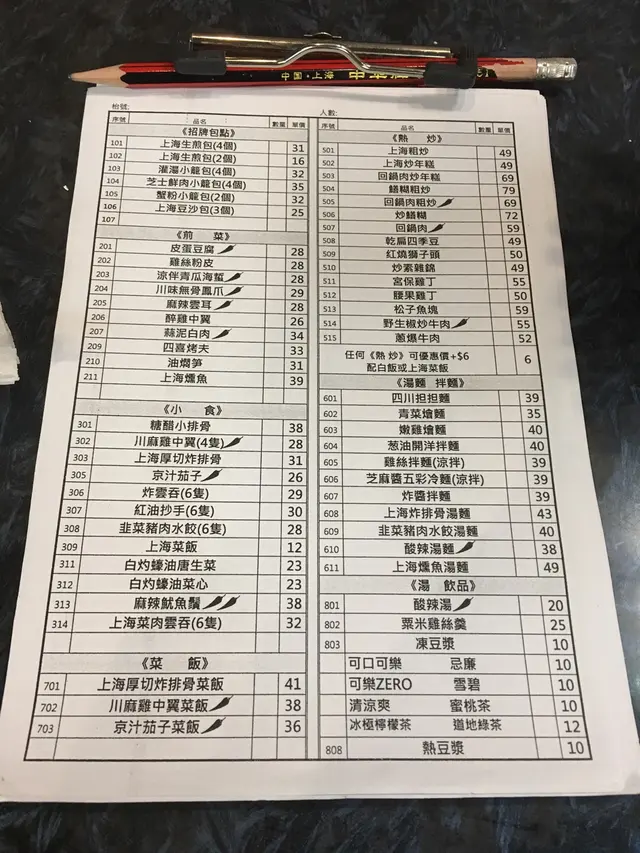 中國·上海
枱號:
人數:
序號 品名 數量 單價
《招牌包點》
101 上海生煎包(4個) 31
102 上海生煎包(2個) 16
103 灌湯小籠包(4個) 32
104 芝士鮮肉小龍包(4個) 35
105 蟹粉小龍包(2個) 32
106 上海豆沙包(3個) 25
107
《前 菜》
201 皮蛋豆腐 28
202 雞絲粉皮 28
203 涼伴青瓜海蜇 28
204 川味無骨鳳爪 29
205 麻辣雲耳 28
206 醉雞中翼 26
207 蒜泥白肉 34
209 四喜烤夫 33
210 油燜笋 31
211 上海燻魚 39
《小 食》
301 糖醋小排骨 38
302 川麻雞中翼(4隻) 28
303 上海厚切炸排骨 31
305 京汁茄子 26
306 炸雲吞(6隻) 29
307 紅油抄手(6隻) 30
308 韭菜豬肉水餃(6隻) 28
309 上海菜飯 12
311 白灼蠔油唐生菜 23
312 白灼蠔油菜心 23
313 麻辣魷魚鬚 38
314 上海菜肉雲吞(6隻) 32
《菜 飯》
701 上海厚切炸排骨菜飯 41
702 川麻雞中翼菜飯 38
703 京汁茄子菜飯 36
序號 品名 數量 單價
《熱 炒》
501 上海粗炒 49
502 上海炒年糕 49
503 回鍋肉炒年糕 69
504 鱔糊粗炒 79
505 回鍋肉粗炒 69
506 炒鱔糊 72
507 回鍋肉 59
508 乾扁四季豆 49
509 紅燒獅子頭 50
510 炒素雜錦 49
511 宮保雞丁 55
512 腰果雞丁 50
513 松子魚塊 59
514 野生椒炒牛肉 55
515 蔥爆牛肉 52
任何《熱 炒》可優惠價+$6
配白飯或上海菜飯 6
《湯麵 拌麵》
601 四川担担麵 39
602 青菜燴麵 35
603 嫩雞燴麵 40
604 葱油開洋拌麵 40
605 雞絲拌麵(涼拌) 39
606 芝麻醬五彩冷麵(涼拌) 39
607 炸醬拌麵 39
608 上海炸排骨湯麵 43
609 韭菜豬肉水餃湯麵 40
610 酸辣湯麵 38
611 上海燻魚湯麵 49
《湯 飲品》
801 酸辣湯 20
802 粟米雞絲羹 25
803 凍豆漿 10
可口可樂 忌廉 10
可樂ZERO 雪碧 10
清涼爽 蜜桃茶 10
冰極檸檬茶 道地綠茶 12
808 熱豆漿 10